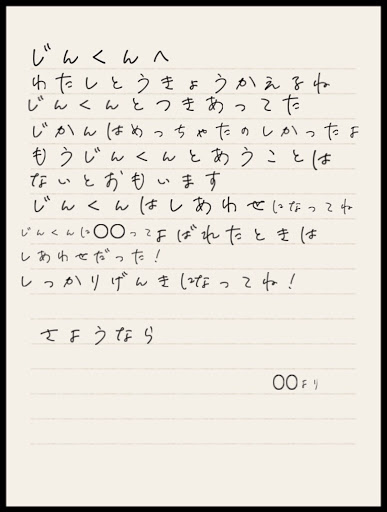 じんくんへ
わたしとうきょうかえるね
じんくんとつきあってた
じかんはめっちゃたのしかったよ
もうじんくんとあうことは
ないとおもいます
じんくんはしあわせになってね
じんくんに○○ってよばれたときは
しあわせだった!
しっかりげんきになってね!
さようなら
○○より